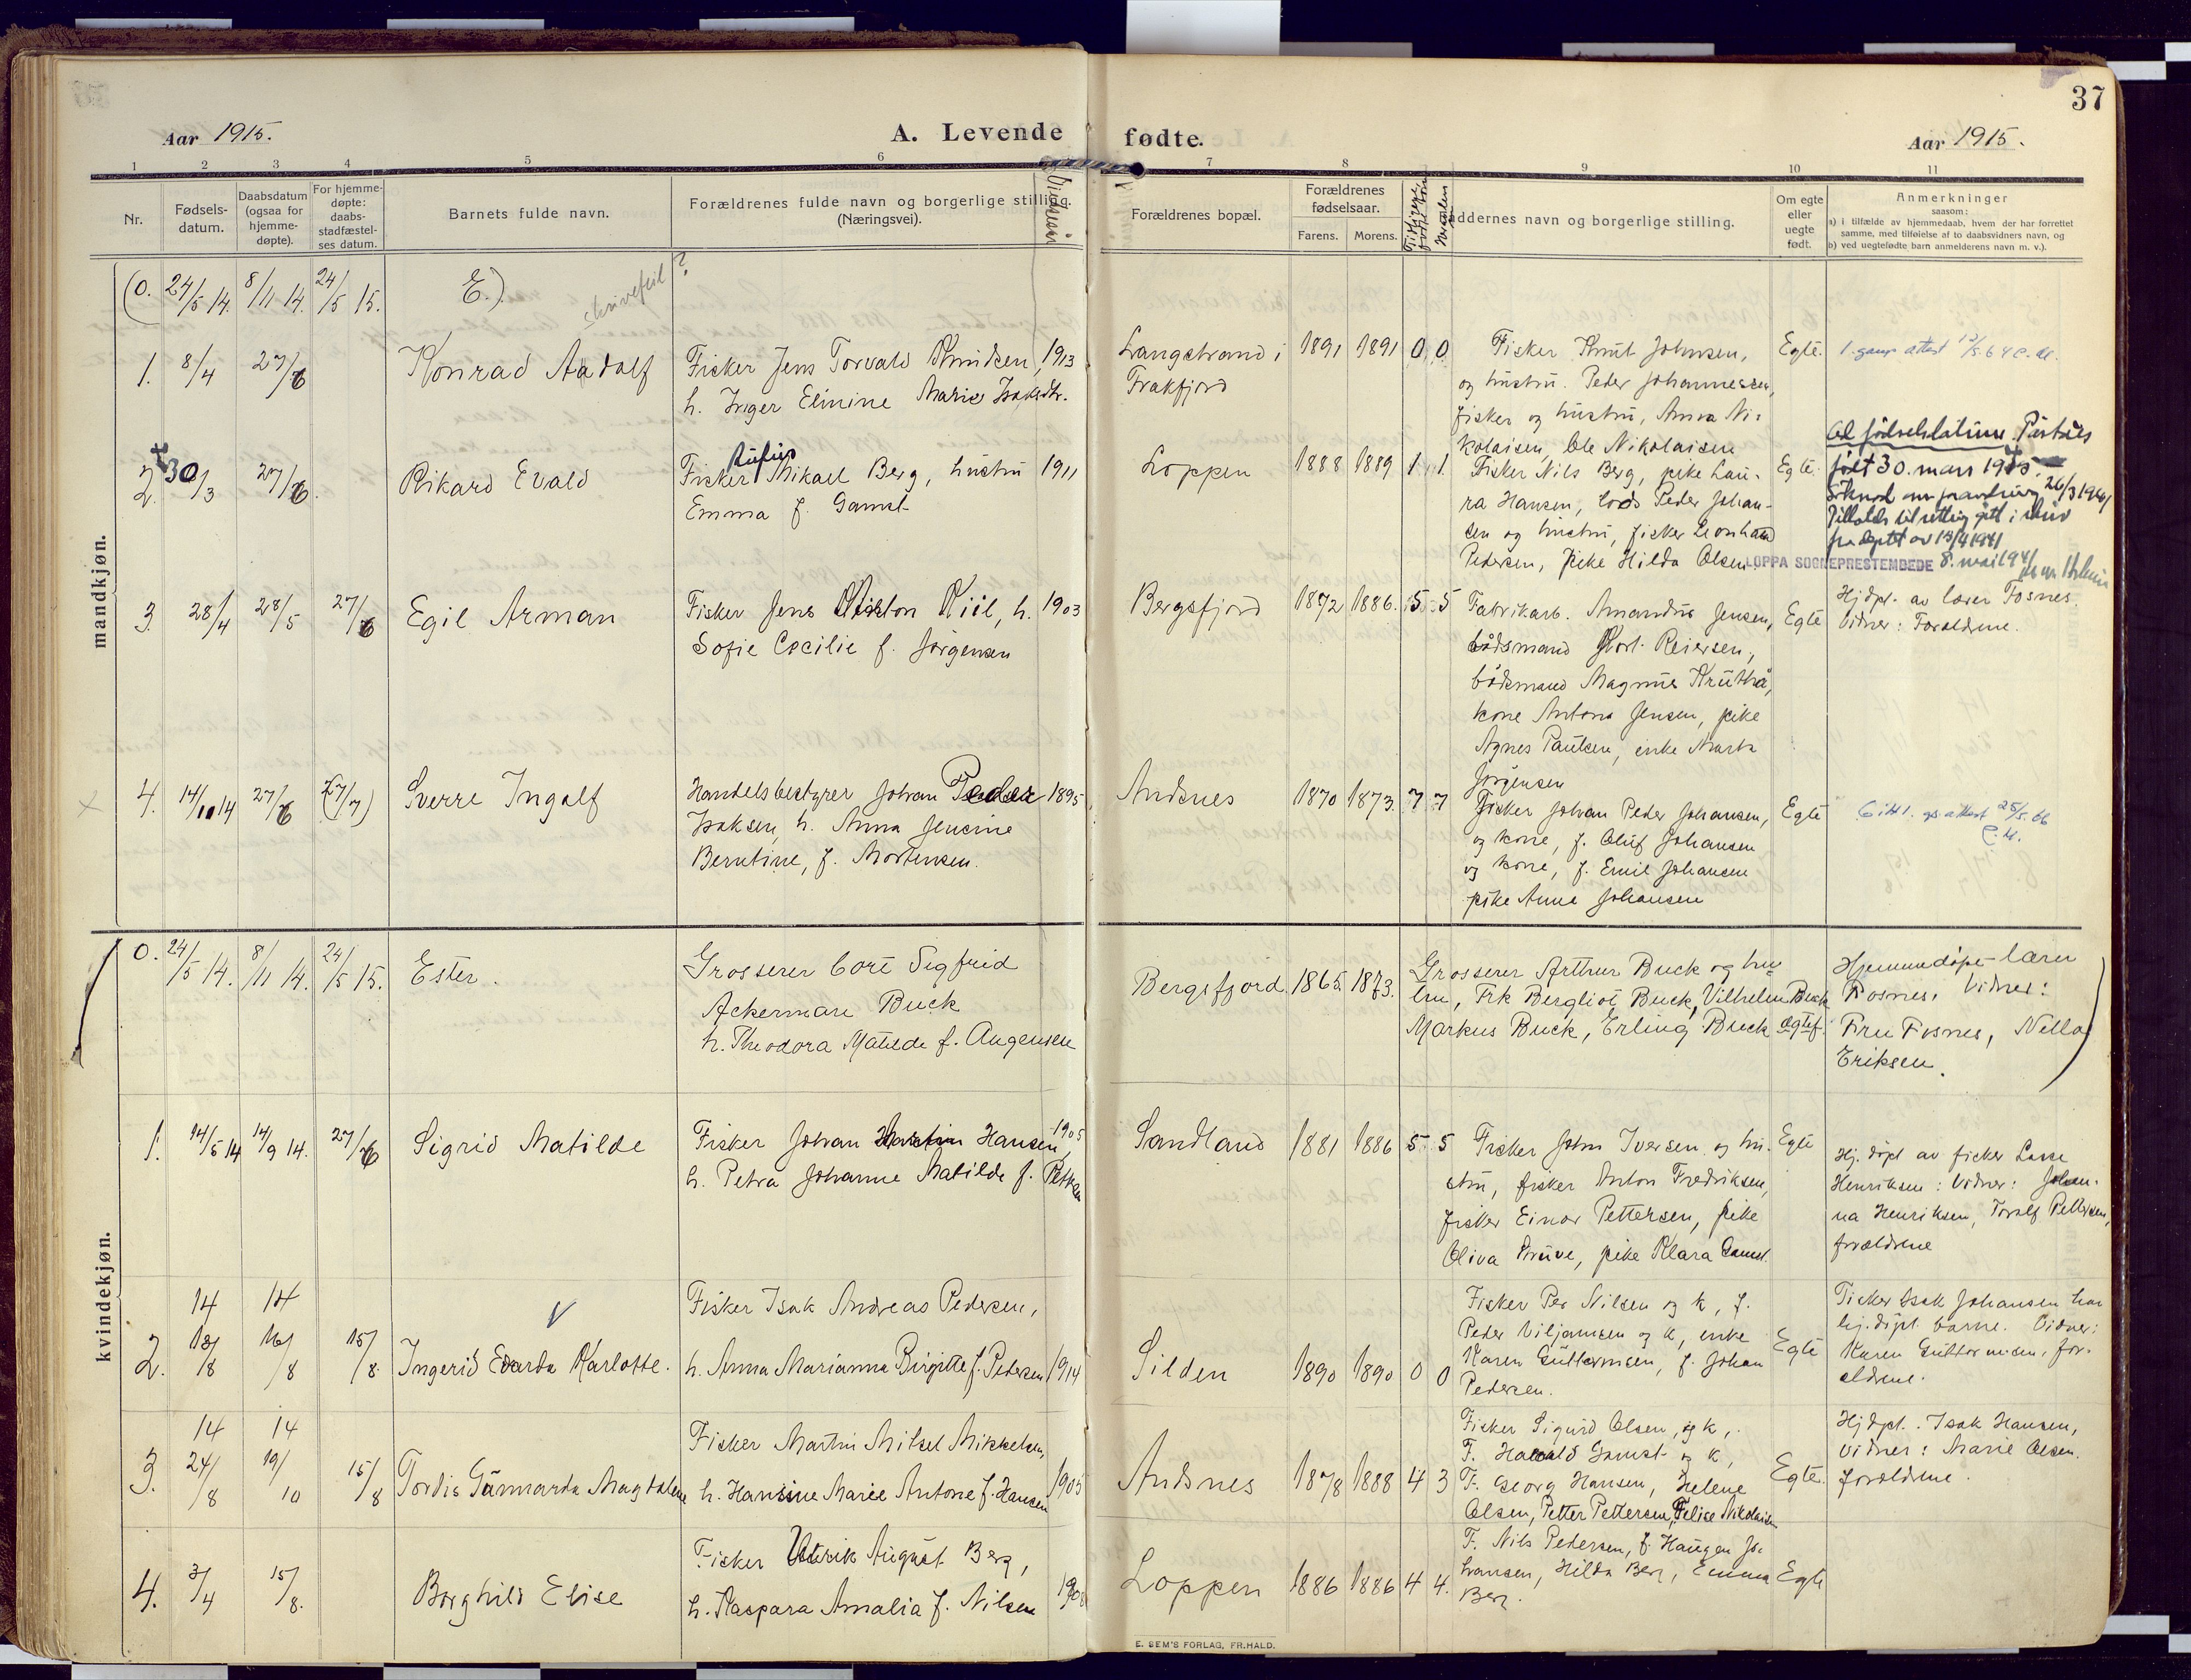 37
Aar 1915.
A. Levende fødte.
Aar 1915.
1 2 3 4 5 6 7 8 9 10 11
Nr.
Fødsels-
datum.
Daabsdatum
(ogsaa for
hjemme-
døpte).
For hjemme-
døpte:
daabs-
stadfæstel-
ses datum.
Barnets fulde navn.
Forældrenes fulde navn og borgerlige stilling.
(Næringsvei).
Forældrenes bopæl.
Forældrenes
fødselsaar.
Farens. Morens.
ddernes navn og borgerlige stilling.
Om egte
eller
uegte
født.
Anmerkninger
saasom:
a) i tilfælde av hjemmedaab, hvem der har forrettet
samme, med tilføielse af to daabsvidners navn, og
b) ved uegtefødte barn anmelderens navn m. v.).
mandkjøn.
(0. 24/5 14. 8/11 14. 24/5 15. E.) skrivefeil ?
1. 8/4 27/6 Konrad Aadolf
Fisker Jens Torvald Knudsen, 1913
h. Inger Elmine Marie Isaksdtr.
Langstrand i
Frakfjord
1891 1891 0 0
Fisker Knut Johnsen,
og hustru. Peder Johannessen,
fisker og hustru, Anna Ni-
kolaisen, Ole Nikolaisen
Egte.
1. gang attest
2. 30/3 27/6. Rikard Evald
Rufus
Fisker Mikael Berg, hustru 1911
Emma f. Gamst
Loppen
1888 1889 1 1.
Fisker Nils Berg, pike Lau-
ra Hansen, Lods Peder Johan-
sen og hustru, fisker Leonhard
Pedersen, pike Hilda Olsen
Egte.
født 30. mars 1915.
26/3 1941
LOPPA SOGNEPRESTEMBEDE 8. mai 1941
3. 28/4 28/5 27/6 Egil Arman
Fisker Jens Kiil, h. 1903
Sofie Cecilie f. Jørgensen
Bergsfjord
1872 1886. 5 5
Fabrikarb. Amandus Jensen,
bådsmand Reiersen,
bådsmand Magnus Kruthå,
kone Antona Jensen, pike
Agnes Paulsen, enke Marta
Jørgensen
Egte
Hjdpt. av lærer Fosnes.
Vidner: Forældrene.
4. 14/10 14 27/6 (27/7) Sverre Ingolf
Handelsbestyrer Johan Peder 1895
Isaksen, h. Anna Jensine
Berntine, f. Mortensen.
Andsnes
1870 1873. 7 7
Fisker Johan Peder Johansen,
og kone, f. Oluf Johansen
og kone, f. Emil Johansen
pike Anne Johansen
Egte
attest 25/5. 66
kvindekjøn.
0. 24/5 14. 8/11 14. 24/5 15. Ester.
Grosserer Core Sigfried
Ackerman Buck
h. Theodora Matilde f. Angensen
Bergsfjord 1865. 1873.
Grosserer Arthur Buck og hu
tru, Frk Bergliot Buck, Vilhelm Buck
Markus Buck, Erling Buck
Egtef.
Hjemmedøpt lærer
Fosnes. Vidner:
Fru Fosnes, Nella
Eriksen.
1. 14/5 14 14/9 14. 27/6 Sigrid Matilde
Fisker Johan Martin Hansen, 1905
h. Petra Johanne Matilde f.
Sandland
1881 1886 5 5
Fisker John Iversen og hu-
stru, fisker Anton Fredriksen,
fisker Einar Pettersen, pike
Oliva Kruve, pike Klara Gamst.
Egte
Hj. døpt av fisker Lasse
Henriksen: Vidner: Johan-
na Henriksen, Toralf Pettersen,
forældrene
14 14
2. 18/8 16/8 15/8 Ingerid Edarda Karlotte.
Fisker Isak Andreas Pedersen,
h. Anna Marianna Birgitte f. Pedersen 1914
Silden
1890 1890 0 0
Fisker Per Nilsen og k, f.
Peder Viljamsen og k, enke
Karen Guttormsen, f. Johan
Pedersen.
Egte
Fisker Isak Johansen har
hj. døpt barne. Vidner:
Karen Guttormsen, for-
ældrene.
14 14
3. 24/8 19/10 15/8 Tordis Gunnarda Magdalene
Fisker Martin Mikal Mikkelsen,
h. Hansine Marie Antone f. Hansen 1905
Andsnes
1878 1888 4 3
Fisker Sigurd Olsen, og k,
F. Harald Gamst og k,
F. Georg Hansen, Helene
Olsen, Petter Pettersen, Felise Nikolaisen
Egte.
Hjdpt. Isak Hansen,
Vidner: Marie Olsen.
forældrene.
4. 3/4 15/8. Borghild Elise
Fisker Ulrik August Berg,
h. Kaspara Amalia f. Nilsen 1908
Loppen
1886 1886 4 4.
F. Nils Pedersen, f. Haugen Jo-
hansen, Hilda Berg, Emma
Berg.
Egte
E. SEM'S FORLAG, FR.HALD.